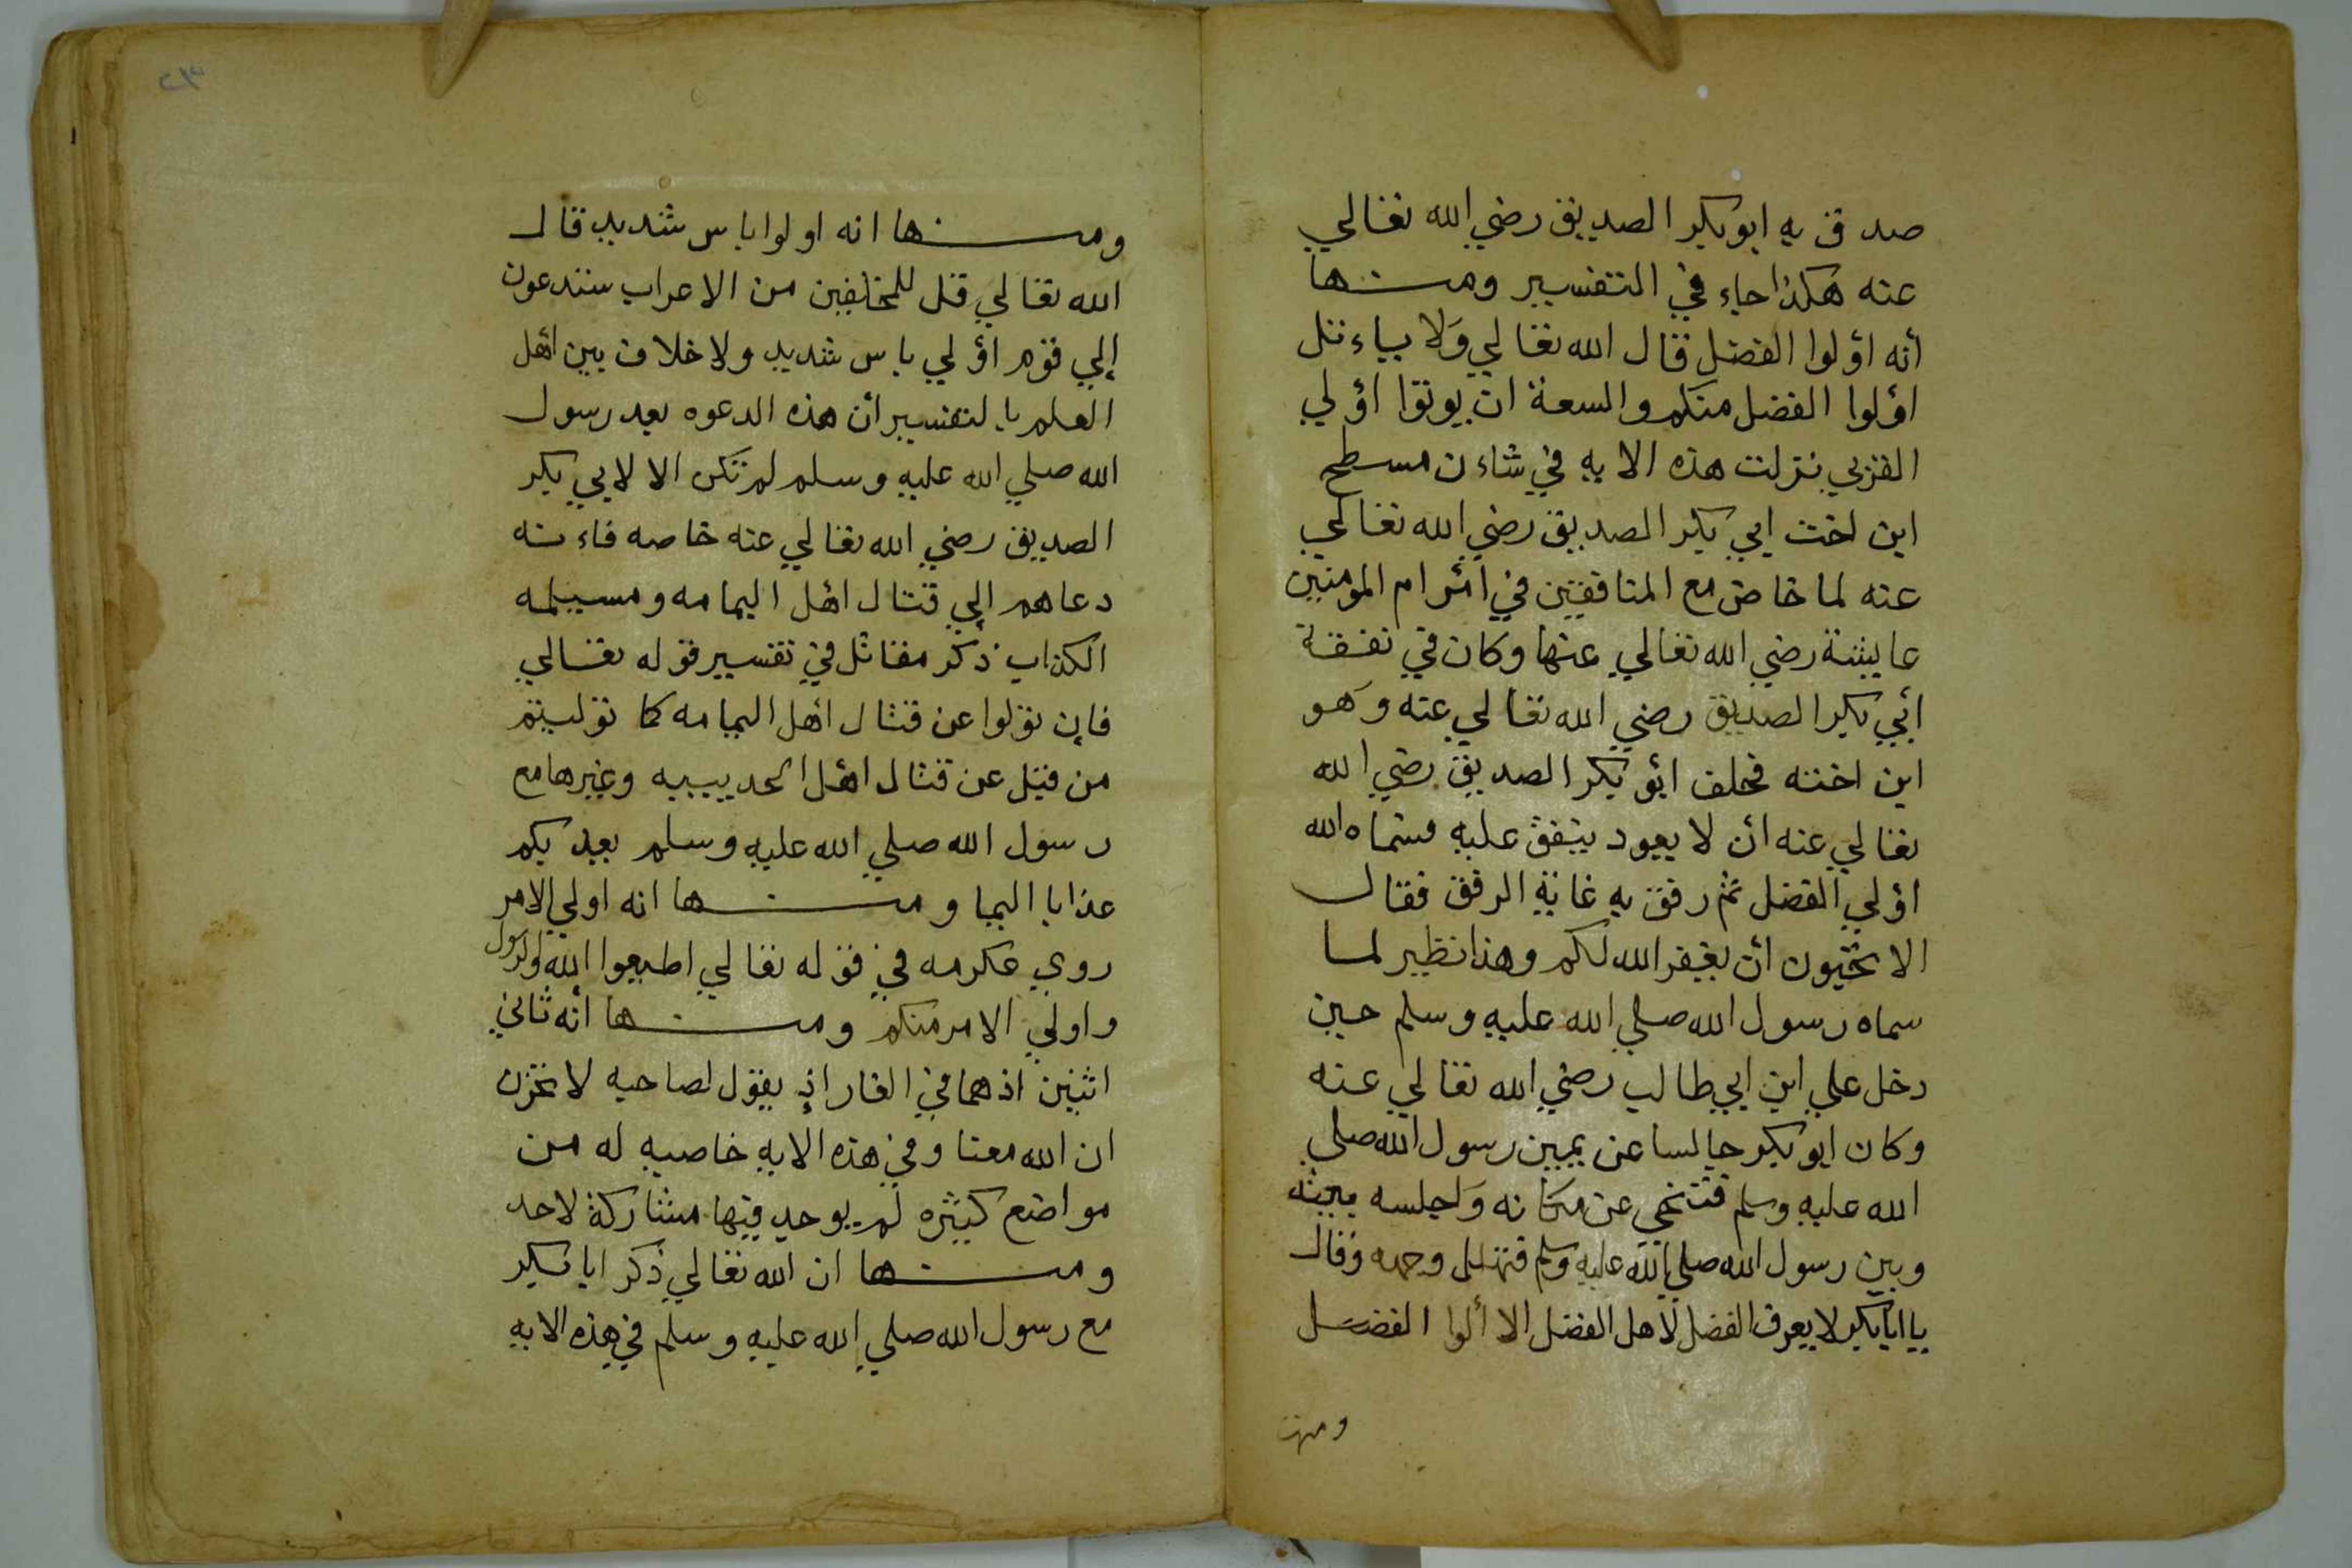 صدق به ابو بكر الصديق رضي الله تعالي
عنه هكذا جاء في التفسير ومنها
أنه اؤلوا الفضل قال الله تعالي وَلا يياءتل
اؤلوا الفضل منكم والسعة ان يوتوا اؤلي
القربي نزلت هذه الايه في شاءن مسطح
ابن اخت ابي بكر الصديق رضي الله تعالي
عنه لما خاض مع المنافقين في اأمر ام المومنين
عايشة رضي الله تعالي عنها وكان في نفقة
اأبي بكر الصديق رضي الله تعالي عنه وَهو
ابن اخته فحلف اأبو بكر الصديق رضي الله
تعالي عنه اأن لا يعود ينفق عليه فسماه الله
اؤلي الفضل ثم رفق به غاية الرفق فقال
الا تحبون اأن يغفر الله لكم وهذا نظير لما
سماه رسول الله صلي الله عليه وسلم حين
دخل علي ابن ابي طالب رضي الله تعالي عنه
وكان ابو بكر جالسا عن يمين رسول الله صلي
الله عليه وسلم فتنحي عن مكانه وَاجلسه بينه
وبين رسول الله صلي الله عليه وسلم فتهلل وجهه وقال
يا ابا بكر لا يعرف الفضل لاهل الفضل الا ألوا الفضل
ومنها
٢٣
ومنها انه اولوا باس شديد قال
الله تعالي قل للمخلفين من الاعراب ستدعون
إلي قوم اؤلي باس شديد ولا خلاف بين اأهل
العلم بالتفسير اأن هذه الدعوه بعد رسول
الله صلي الله عليه وسلم لم تكن الا لابي بكر
الصديق رضي الله تعالي عنه خاصه فاءنه
دعاهم إلي قتال اأهل اليمامه ومسيلمه
الكذاب ذكر مقاتل في تفسير قوله تعالي
فاإن تولوا عن قتال اأهل اليمامه كما توليتم
من قبل عن قتال اأهل الحديبيه وغيرها مع
رسول الله صلي الله عليه وسلم يعذبكم
عذابا اليما ومنها انه اولي الامر
روي عكرمه في قوله تعالي اطيعوا الله والرسول
واولي الامر منكم ومنها أنه ثاني
اثنين اذ هما في الغار اذ يقول لصاحبه لا تحزن
ان الله معنا وفي هذه الايه خاصيه له من
مواضع كثيره لم يوجد فيها مشاركة لاحد
ومنها ان الله تعالي ذكر ابا بكر
مع رسول الله صلي الله عليه وسلم في هذه الايه